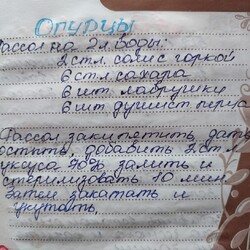 Огурцы
Рассол на 2л воды:
2 ст л. соли с горкой
6 ст л. сахара
6 шт. лаврушки
6 шт душист перца
Рассол закипятить дать
остыть, добавить 2 ст л
уксуса 70% залить и
стерилизовать 10 мин
затем закатать и
укутать.